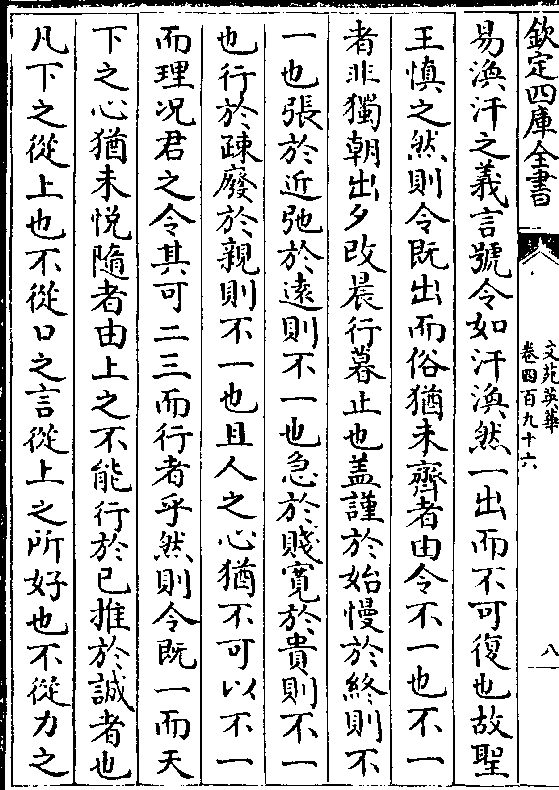 欽定四庫全書
文苑英華
卷四百九十六
八
易渙汗之義言號令如汗渙然一出而不可復也故聖
王慎之然則令既出而俗猶未齊者由令不一也不一
者非獨朝出夕改晨行暮止也盖謹於始慢於終則不
一也張於近弛於遠則不一也急於賤寛於貴則不一
也行於疎廢於親則不一也且人之心猶不可以不一
而理况君之令其可二三而行者乎然則令既一而天
下之心猶未悦隨者由上之不能行於已推於誠者也
凡下之從上也不從口之言從上之所好也不從力之